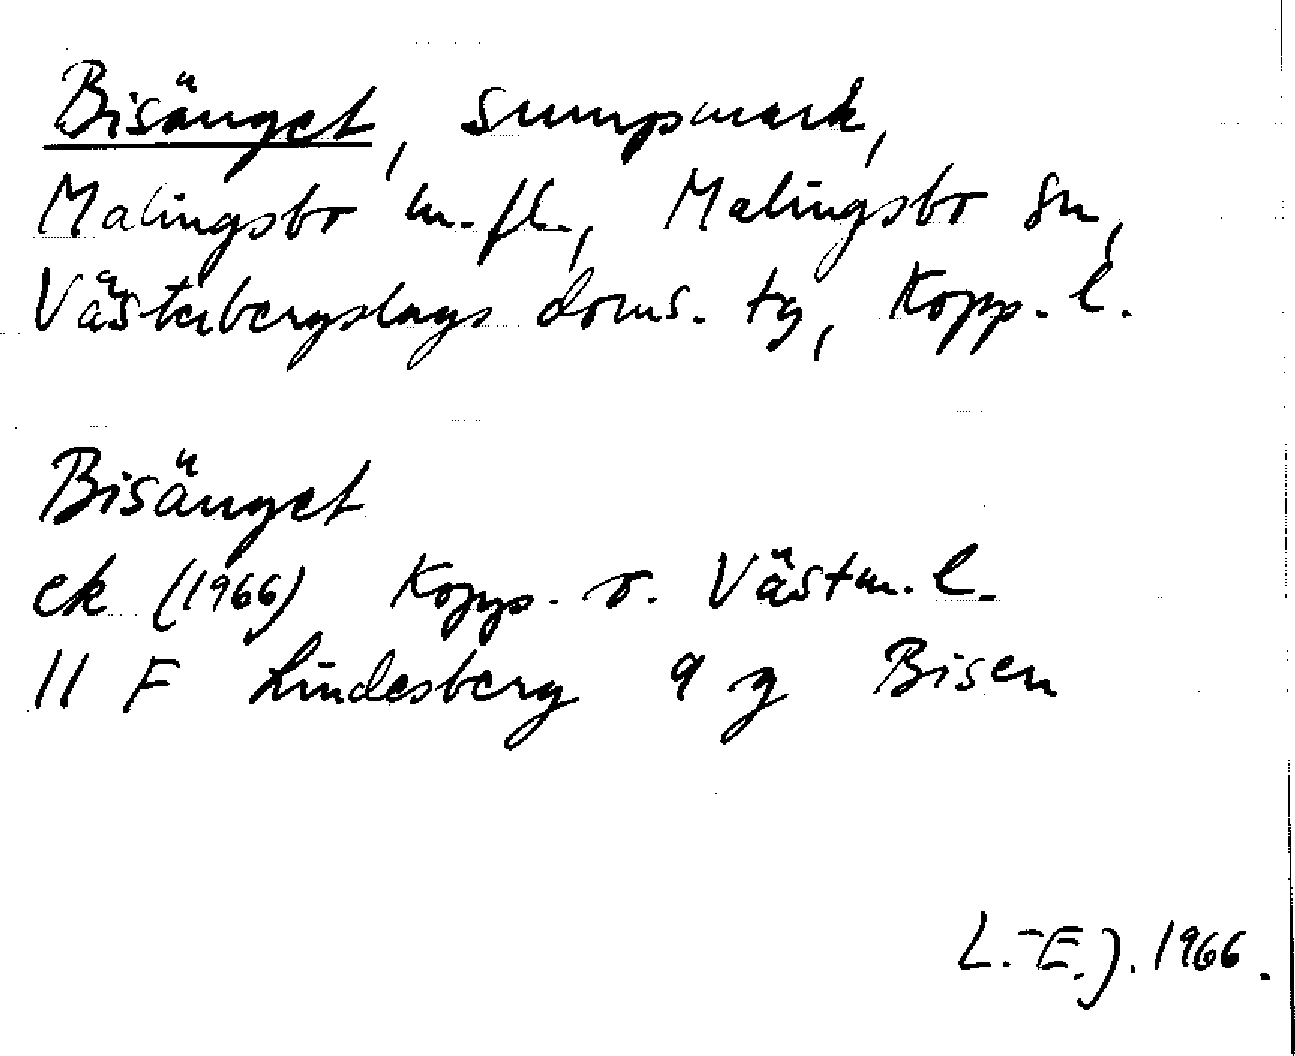 Bisänget, sumpmark,
Malingsbo m.fl., Malingsbo sn,
Västerbergslags doms. tg, Kopp. l.
Bisänget
ek (1966) Kopp. o. Västm. l.
11 F Lindesberg 9 g Bisen
L.-E.J. 1966.